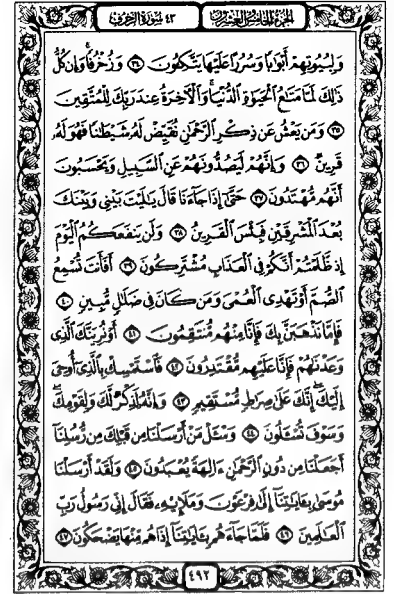 الجزء الخامس والعشرون
٤٣ سورة الزخرف
وَلِبُيُوتِهِمْ أَبْوَٰبًا وَسُرُرًا عَلَيْهَا يَتَّكِـُٔونَ ٣٤ وَزُخْرُفًا ۚ وَإِن كُلُّ
ذَٰلِكَ لَمَّا مَتَـٰعُ ٱلْحَيَوٰةِ ٱلدُّنْيَا ۚ وَٱلْـَٔاخِرَةُ عِندَ رَبِّكَ لِلْمُتَّقِينَ
٣٥ وَمَن يَعْشُ عَن ذِكْرِ ٱلرَّحْمَـٰنِ نُقَيِّضْ لَهُۥ شَيْطَـٰنًا فَهُوَ لَهُۥ
قَرِينٌ ٣٦ وَإِنَّهُمْ لَيَصُدُّونَهُمْ عَنِ ٱلسَّبِيلِ وَيَحْسَبُونَ
أَنَّهُم مُّهْتَدُونَ ٣٧ حَتَّىٰٓ إِذَا جَآءَنَا قَالَ يَـٰلَيْتَ بَيْنِى وَبَيْنَكَ
بُعْدَ ٱلْمَشْرِقَيْنِ فَبِئْسَ ٱلْقَرِينُ ٣٨ وَلَن يَنفَعَكُمُ ٱلْيَوْمَ
إِذ ظَّلَمْتُمْ أَنَّكُمْ فِى ٱلْعَذَابِ مُشْتَرِكُونَ ٣٩ أَفَأَنتَ تُسْمِعُ
ٱلصُّمَّ أَوْ تَهْدِى ٱلْعُمْىَ وَمَن كَانَ فِى ضَلَـٰلٍ مُّبِينٍ ٤٠
فَإِمَّا نَذْهَبَنَّ بِكَ فَإِنَّا مِنْهُم مُّنتَقِمُونَ ٤١ أَوْ نُرِيَنَّكَ ٱلَّذِى
وَعَدْنَـٰهُمْ فَإِنَّا عَلَيْهِم مُّقْتَدِرُونَ ٤٢ فَٱسْتَمْسِكْ بِٱلَّذِىٓ أُوحِىَ
إِلَيْكَ ۖ إِنَّكَ عَلَىٰ صِرَٰطٍ مُّسْتَقِيمٍ ٤٣ وَإِنَّهُۥ لَذِكْرٌ لَّكَ وَلِقَوْمِكَ ۖ
وَسَوْفَ تُسْـَٔلُونَ ٤٤ وَسْـَٔلْ مَنْ أَرْسَلْنَا مِن قَبْلِكَ مِن رُّسُلِنَآ
أَجَعَلْنَا مِن دُونِ ٱلرَّحْمَـٰنِ ءَالِهَةً يُعْبَدُونَ ٤٥ وَلَقَدْ أَرْسَلْنَا
مُوسَىٰ بِـَٔايَـٰتِنَآ إِلَىٰ فِرْعَوْنَ وَمَلَإِي۟هِۦ فَقَالَ إِنِّى رَسُولُ رَبِّ
ٱلْعَـٰلَمِينَ ٤٦ فَلَمَّا جَآءَهُم بِـَٔايَـٰتِنَآ إِذَا هُم مِّنْهَا يَضْحَكُونَ ٤٧
٤٩٢